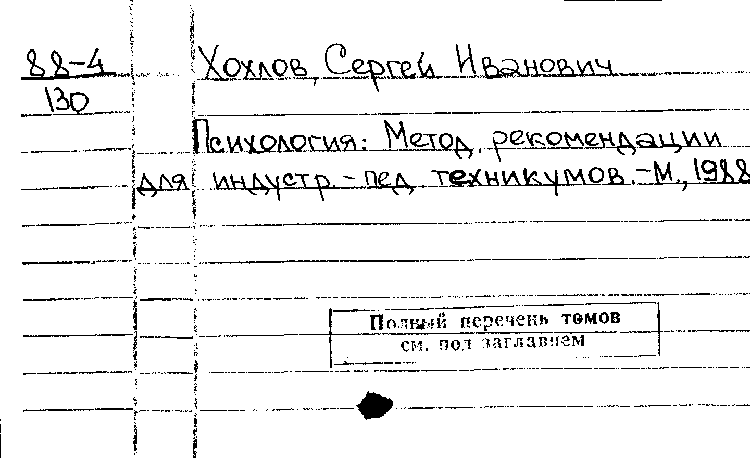 88-4
130
Хохлов, Сергей Иванович
Психология: Метод. рекомендации
для индустр.-пед. техникумов.-М., 1988
Полный перечень томов
см. под заглавием